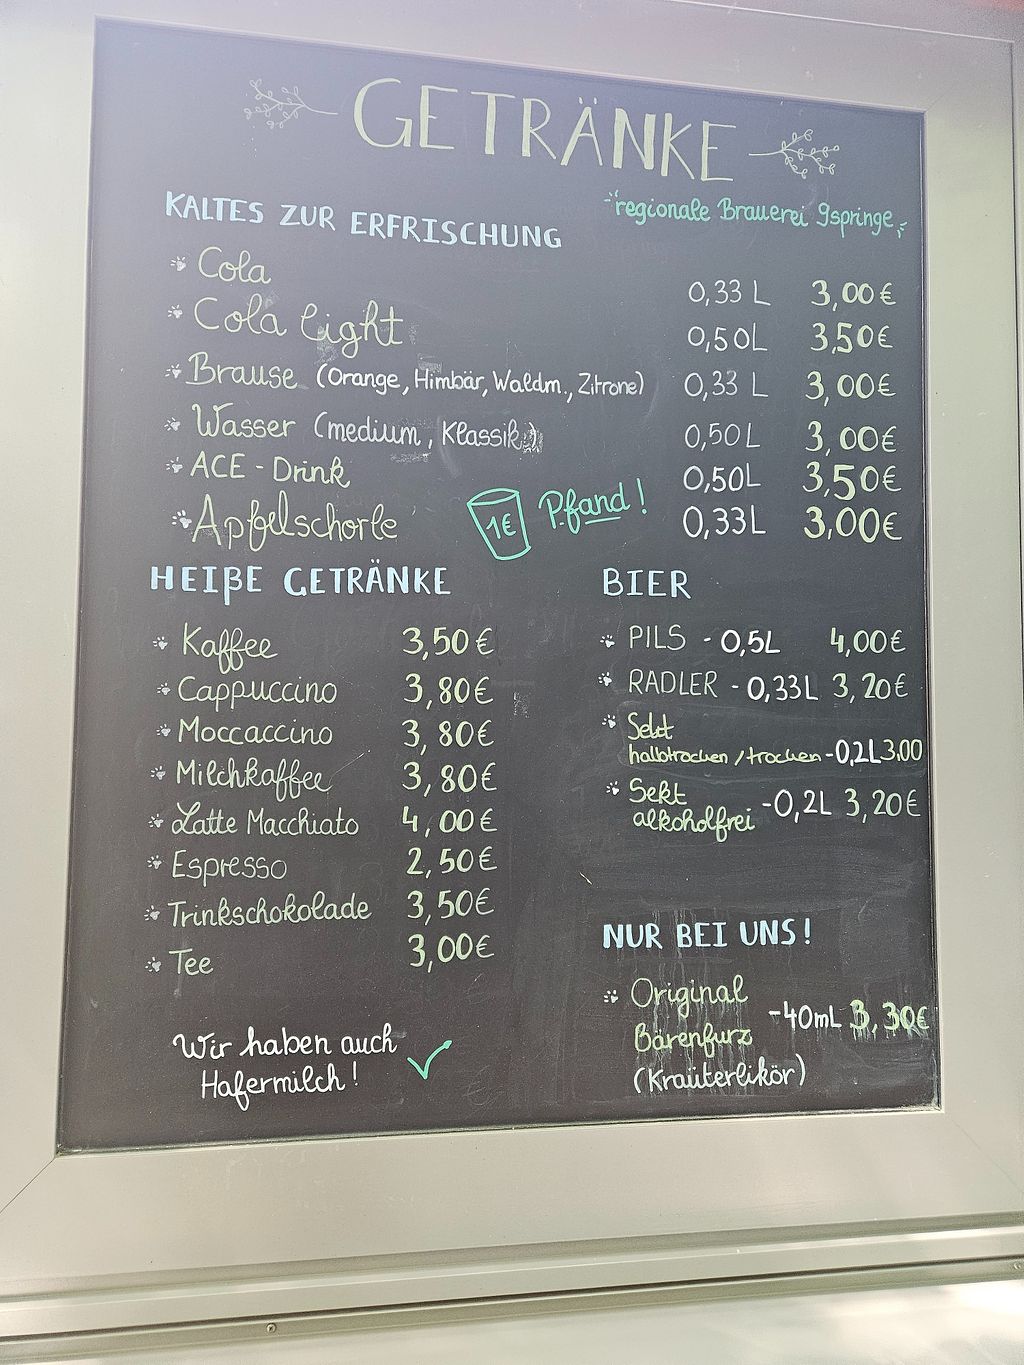 GETRÄNKE
KALTES ZUR ERFRISCHUNG
regionale Brauerei Gspringe
Cola 0,33 L 3,00€
Cola light 0,50L 3,50€
Brause (Orange, Himbär, Waldm., Zitrone) 0,33 L 3,00€
Wasser (medium, Klassik) 0,50L 3,00€
ACE - Drink 0,50L 3,50€
Apfelschorle 0,33L 3,00€
1€ Pfand!
HEIßE GETRÄNKE
Kaffee 3,50€
Cappuccino 3,80€
Moccaccino 3,80€
Milchkaffee 3,80€
Latte Macchiato 4,00€
Espresso 2,50€
Trinkschokolade 3,50€
Tee 3,00€
Wir haben auch
Hafermilch!
BIER
PILS - 0,5L 4,00€
RADLER - 0,33L 3,20€
Sekt
halbtrocken/trocken - 0,2L 3,00
Sekt
alkoholfrei - 0,2L 3,20€
NUR BEI UNS!
Original
Bärenfurz - 40mL 3,30€
(Kräuterlikör)